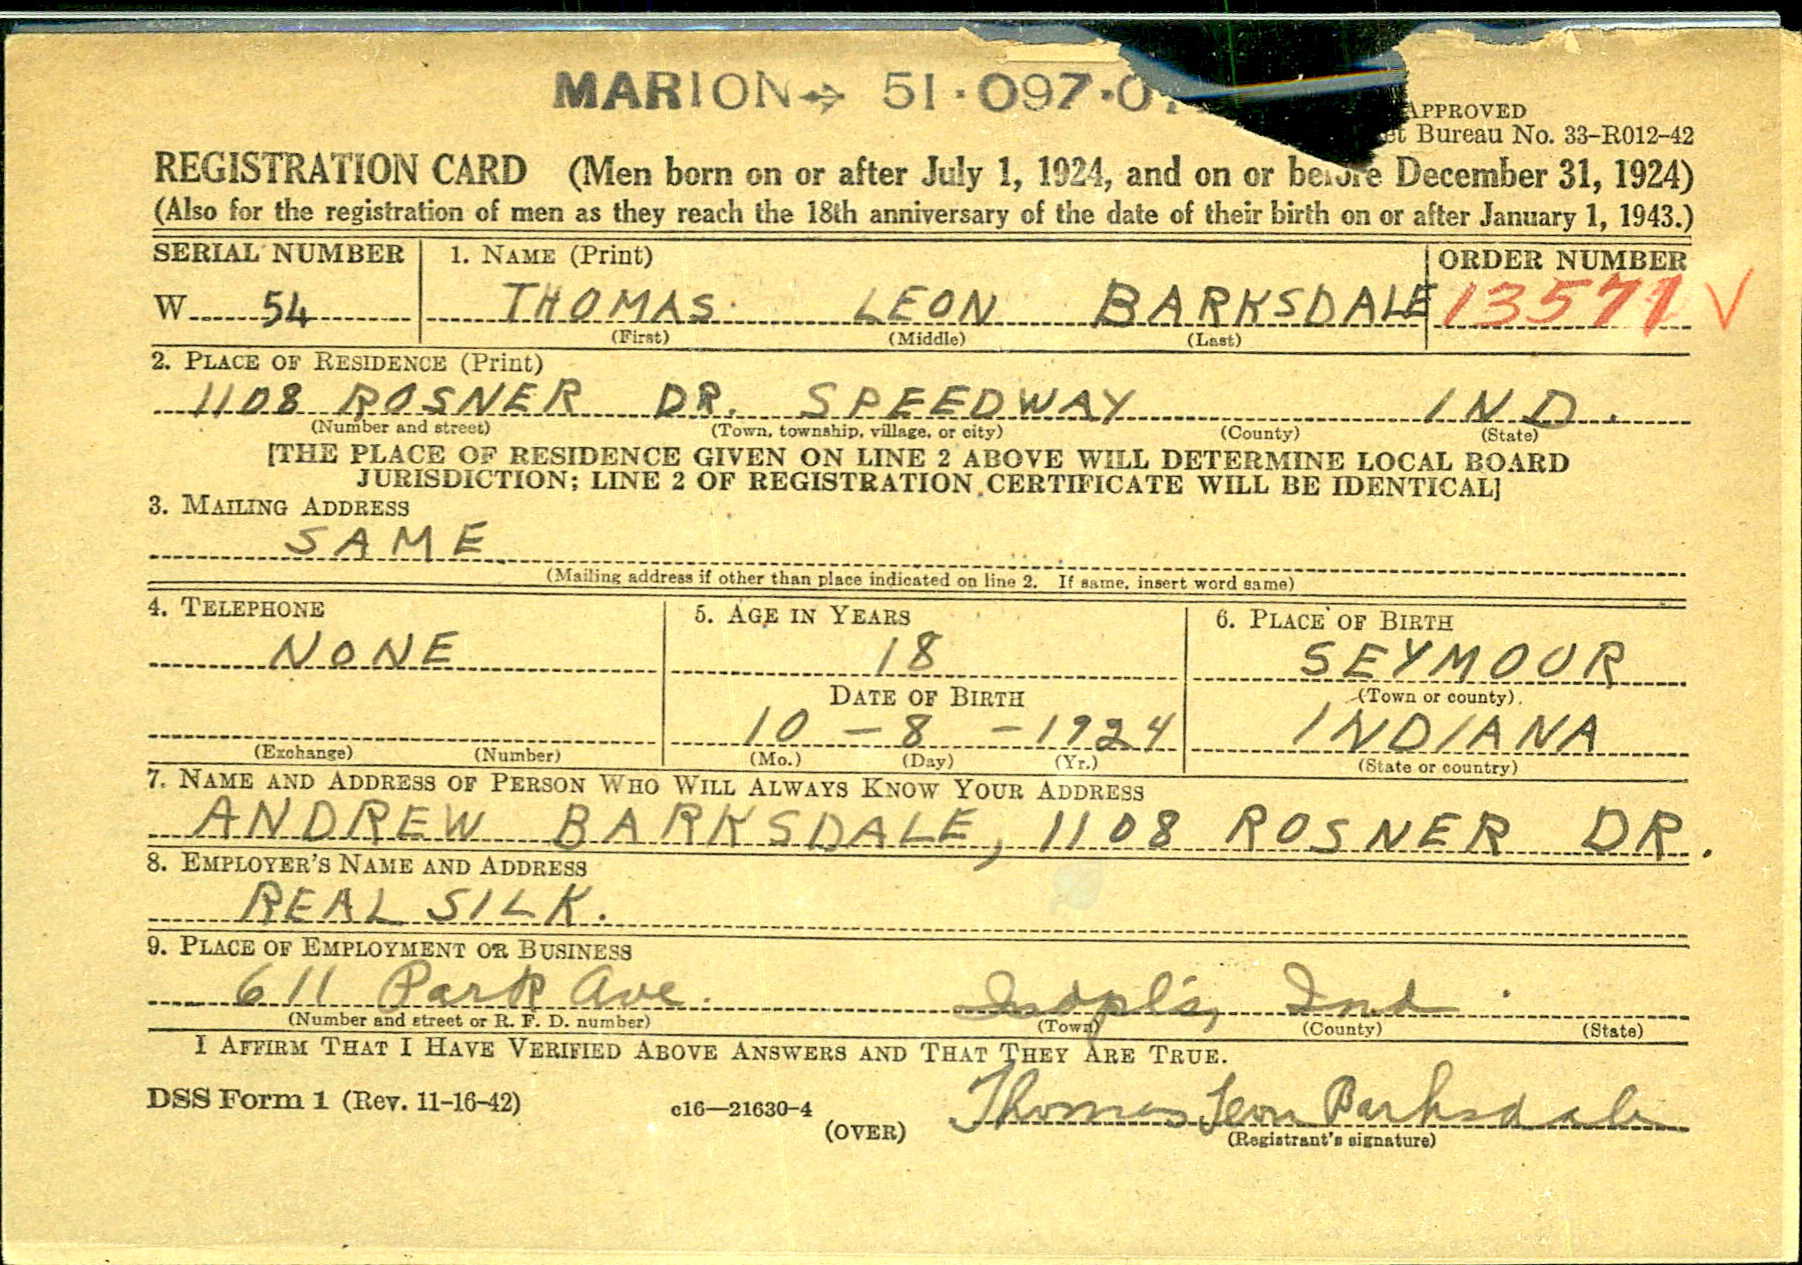 MARION 51·097·0
APPROVED
Bureau No. 33-R012-42
REGISTRATION CARD (Men born on or after July 1, 1924, and on or before December 31, 1924)
(Also for the registration of men as they reach the 18th anniversary of the date of their birth on or after January 1, 1943.)
SERIAL NUMBER 1. NAME (Print) ORDER NUMBER
W 54 THOMAS LEON BARKSDALE 13571 ✓
(First) (Middle) (Last)
2. PLACE OF RESIDENCE (Print)
1108 ROSNER DR. SPEEDWAY IND.
(Number and street) (Town, township, village, or city) (County) (State)
[THE PLACE OF RESIDENCE GIVEN ON LINE 2 ABOVE WILL DETERMINE LOCAL BOARD
JURISDICTION; LINE 2 OF REGISTRATION CERTIFICATE WILL BE IDENTICAL]
3. MAILING ADDRESS
SAME
(Mailing address if other than place indicated on line 2. If same, insert word same)
4. TELEPHONE 5. AGE IN YEARS 6. PLACE OF BIRTH
NONE 18 SEYMOUR
DATE OF BIRTH (Town or county)
10 - 8 - 1924 INDIANA
(Exchange) (Number) (Mo.) (Day) (Yr.) (State or country)
7. NAME AND ADDRESS OF PERSON WHO WILL ALWAYS KNOW YOUR ADDRESS
ANDREW BARKSDALE, 1108 ROSNER DR.
8. EMPLOYER'S NAME AND ADDRESS
REAL SILK.
9. PLACE OF EMPLOYMENT OR BUSINESS
611 Park Ave. Indpl's, Ind
(Number and street or R. F. D. number) (Town) (County) (State)
I AFFIRM THAT I HAVE VERIFIED ABOVE ANSWERS AND THAT THEY ARE TRUE.
DSS Form 1 (Rev. 11-16-42) c16—21630-4 Thomas Leon Barksdale
(OVER) (Registrant's signature)